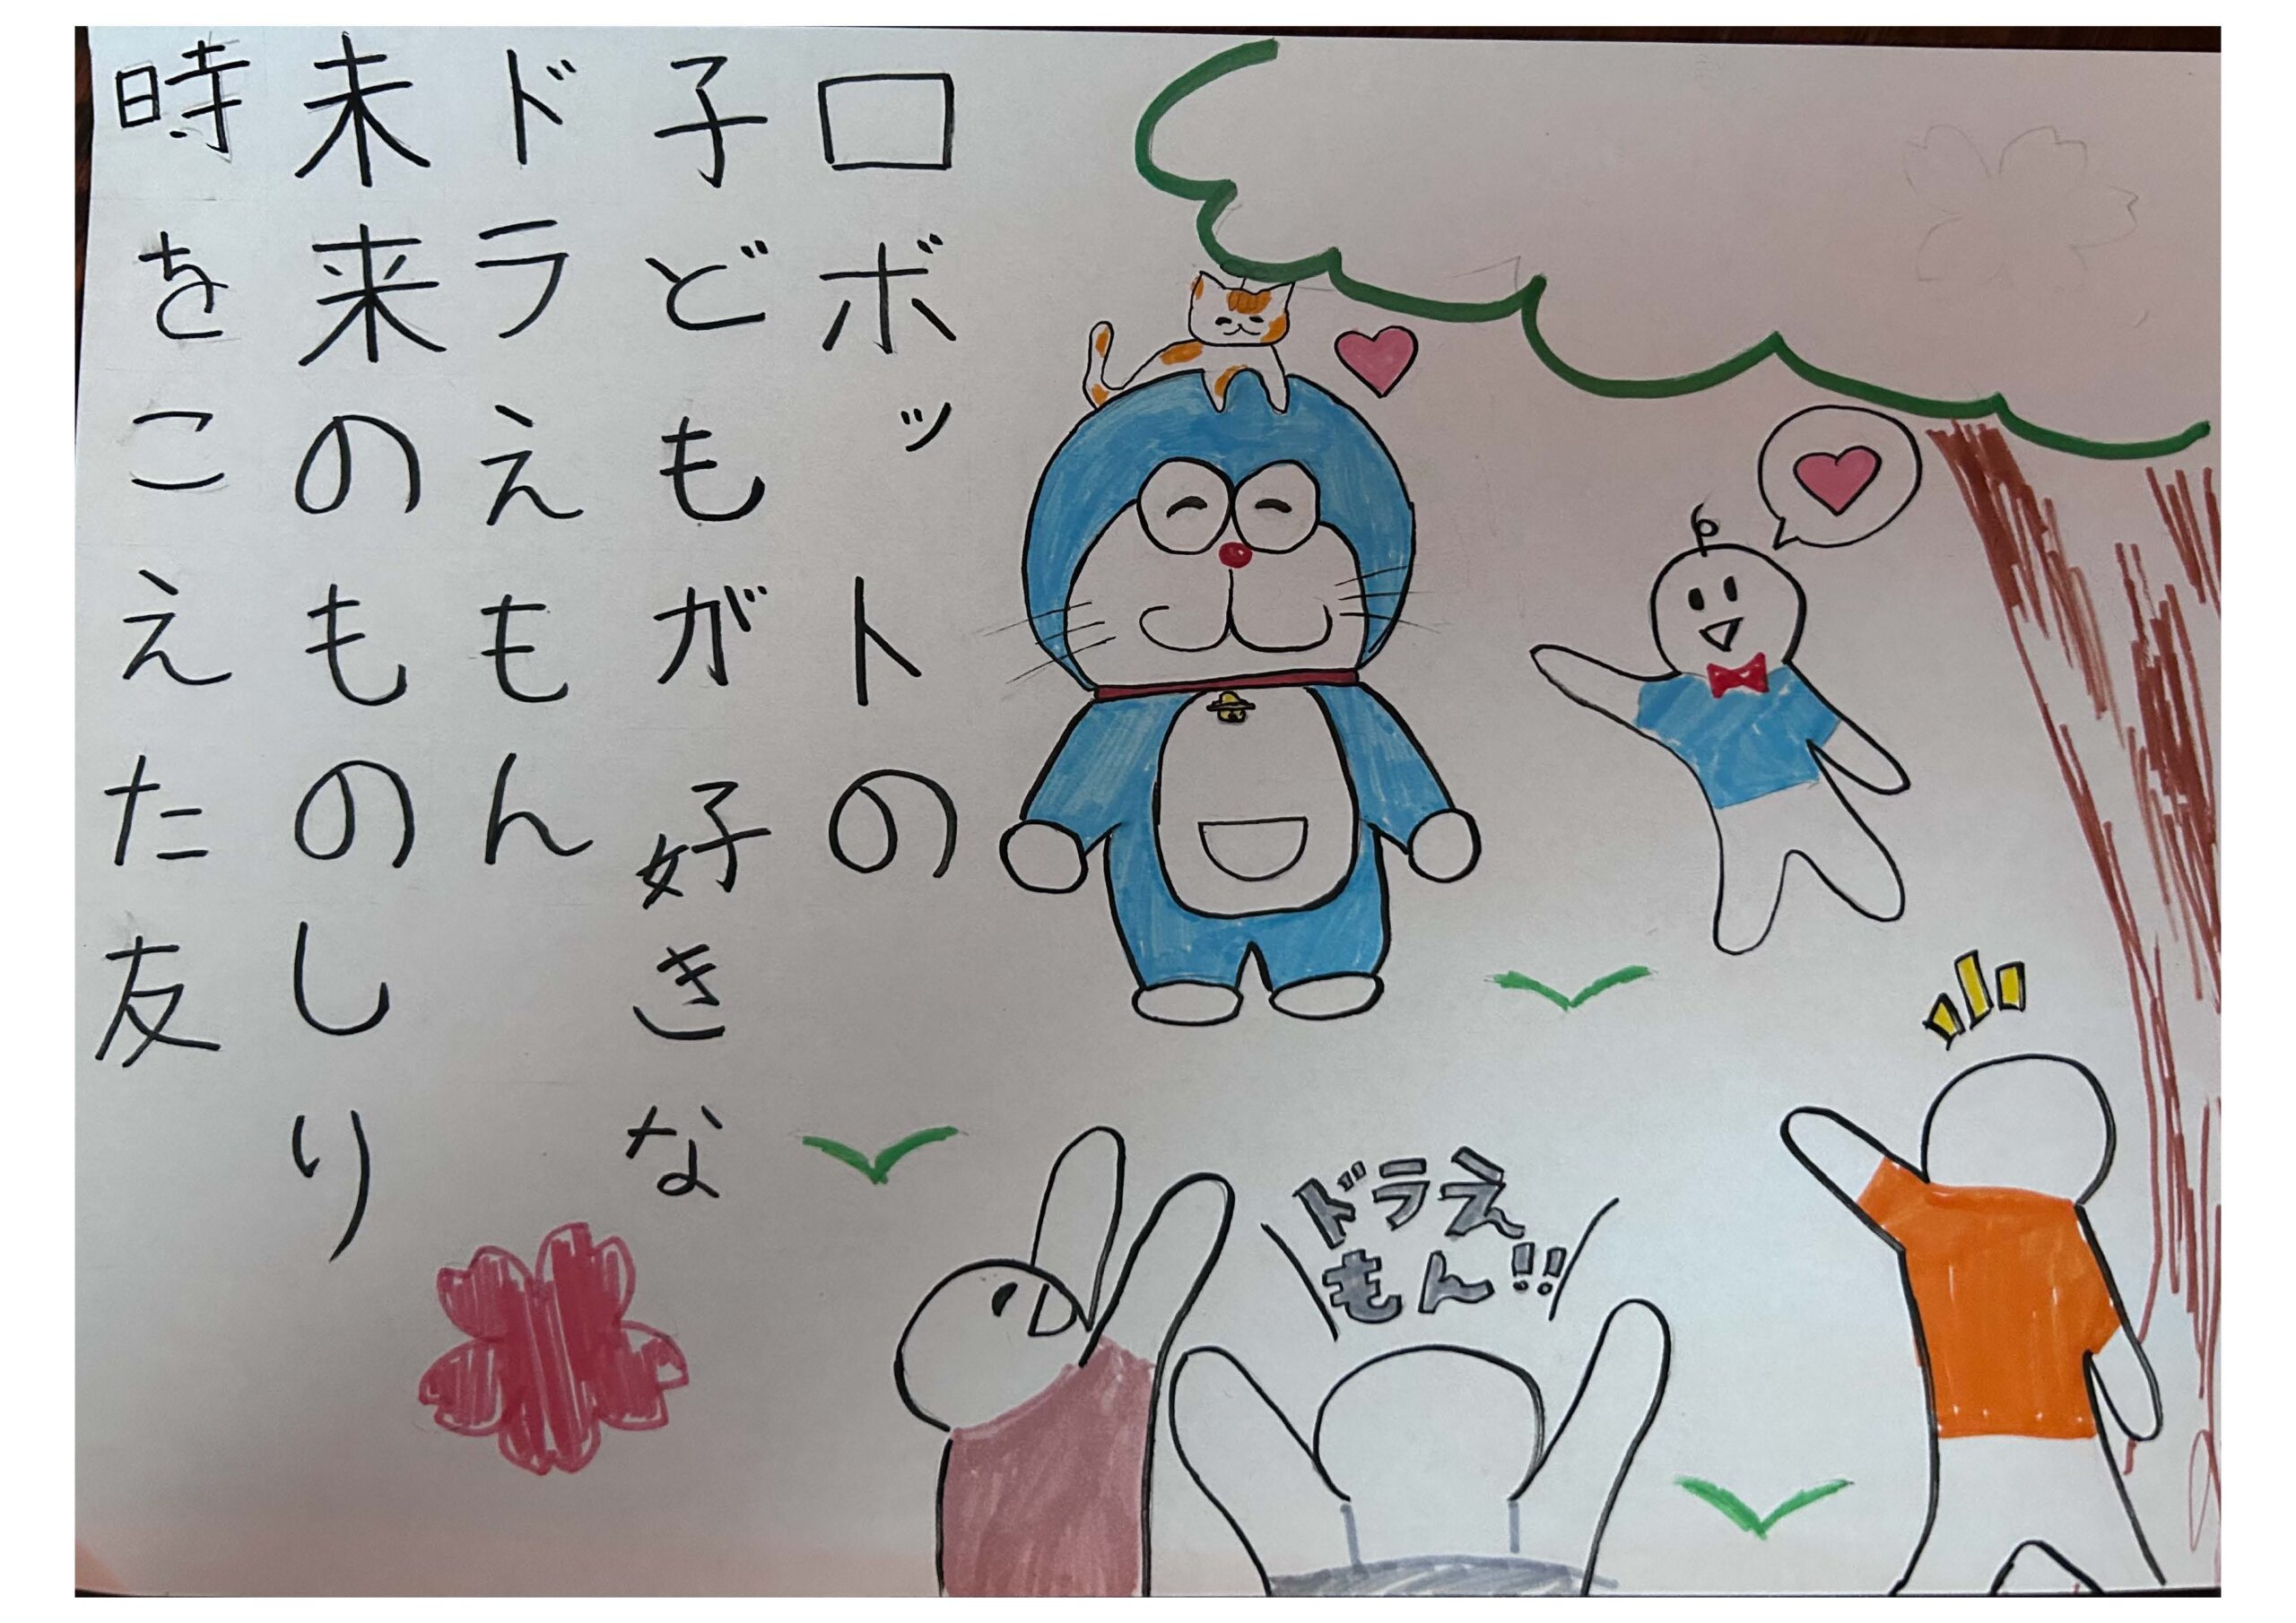 ロボットの
子どもが好きな
ドラえもん
未来のものしり
時をこえた友
ドラえ
もん!!